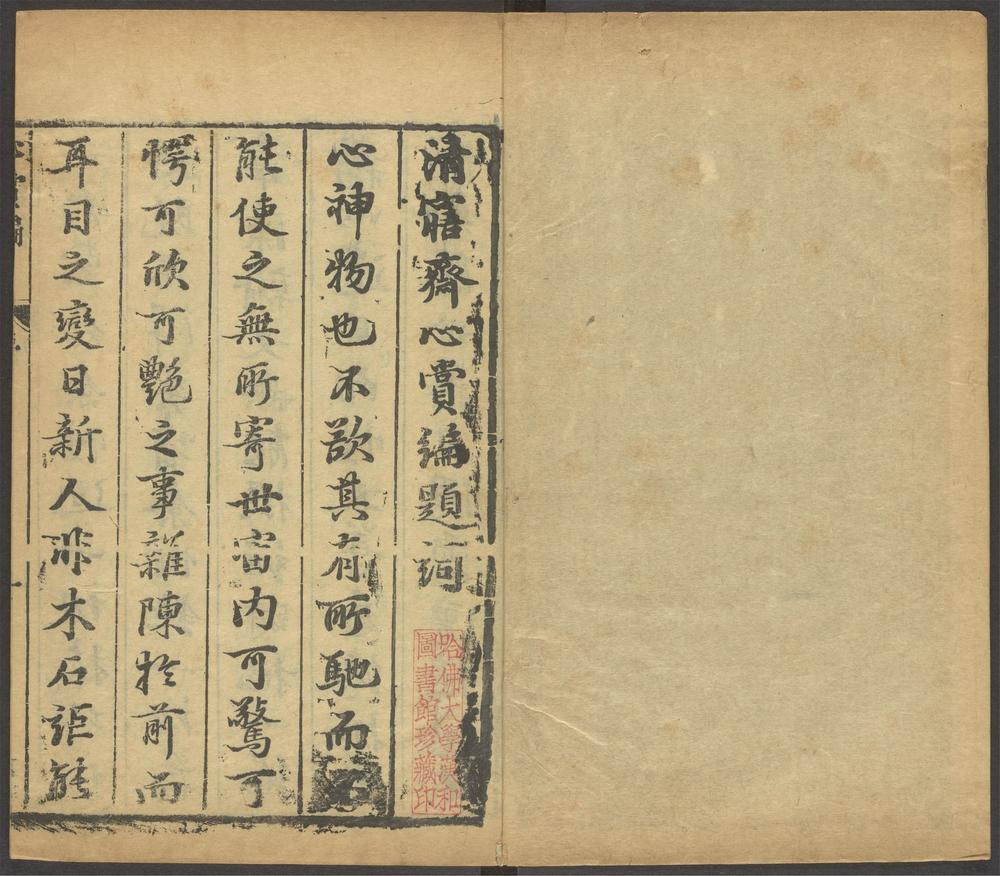 清寤齋心賞編題詞
心神物也不欲其有所馳而不
能使之無所寄世宙内可驚可
愕可欣可艷之事雜陳於前而
耳目之變日新人非木石詎能
心賞編
哈佛大學漢和
圖書館珍藏印